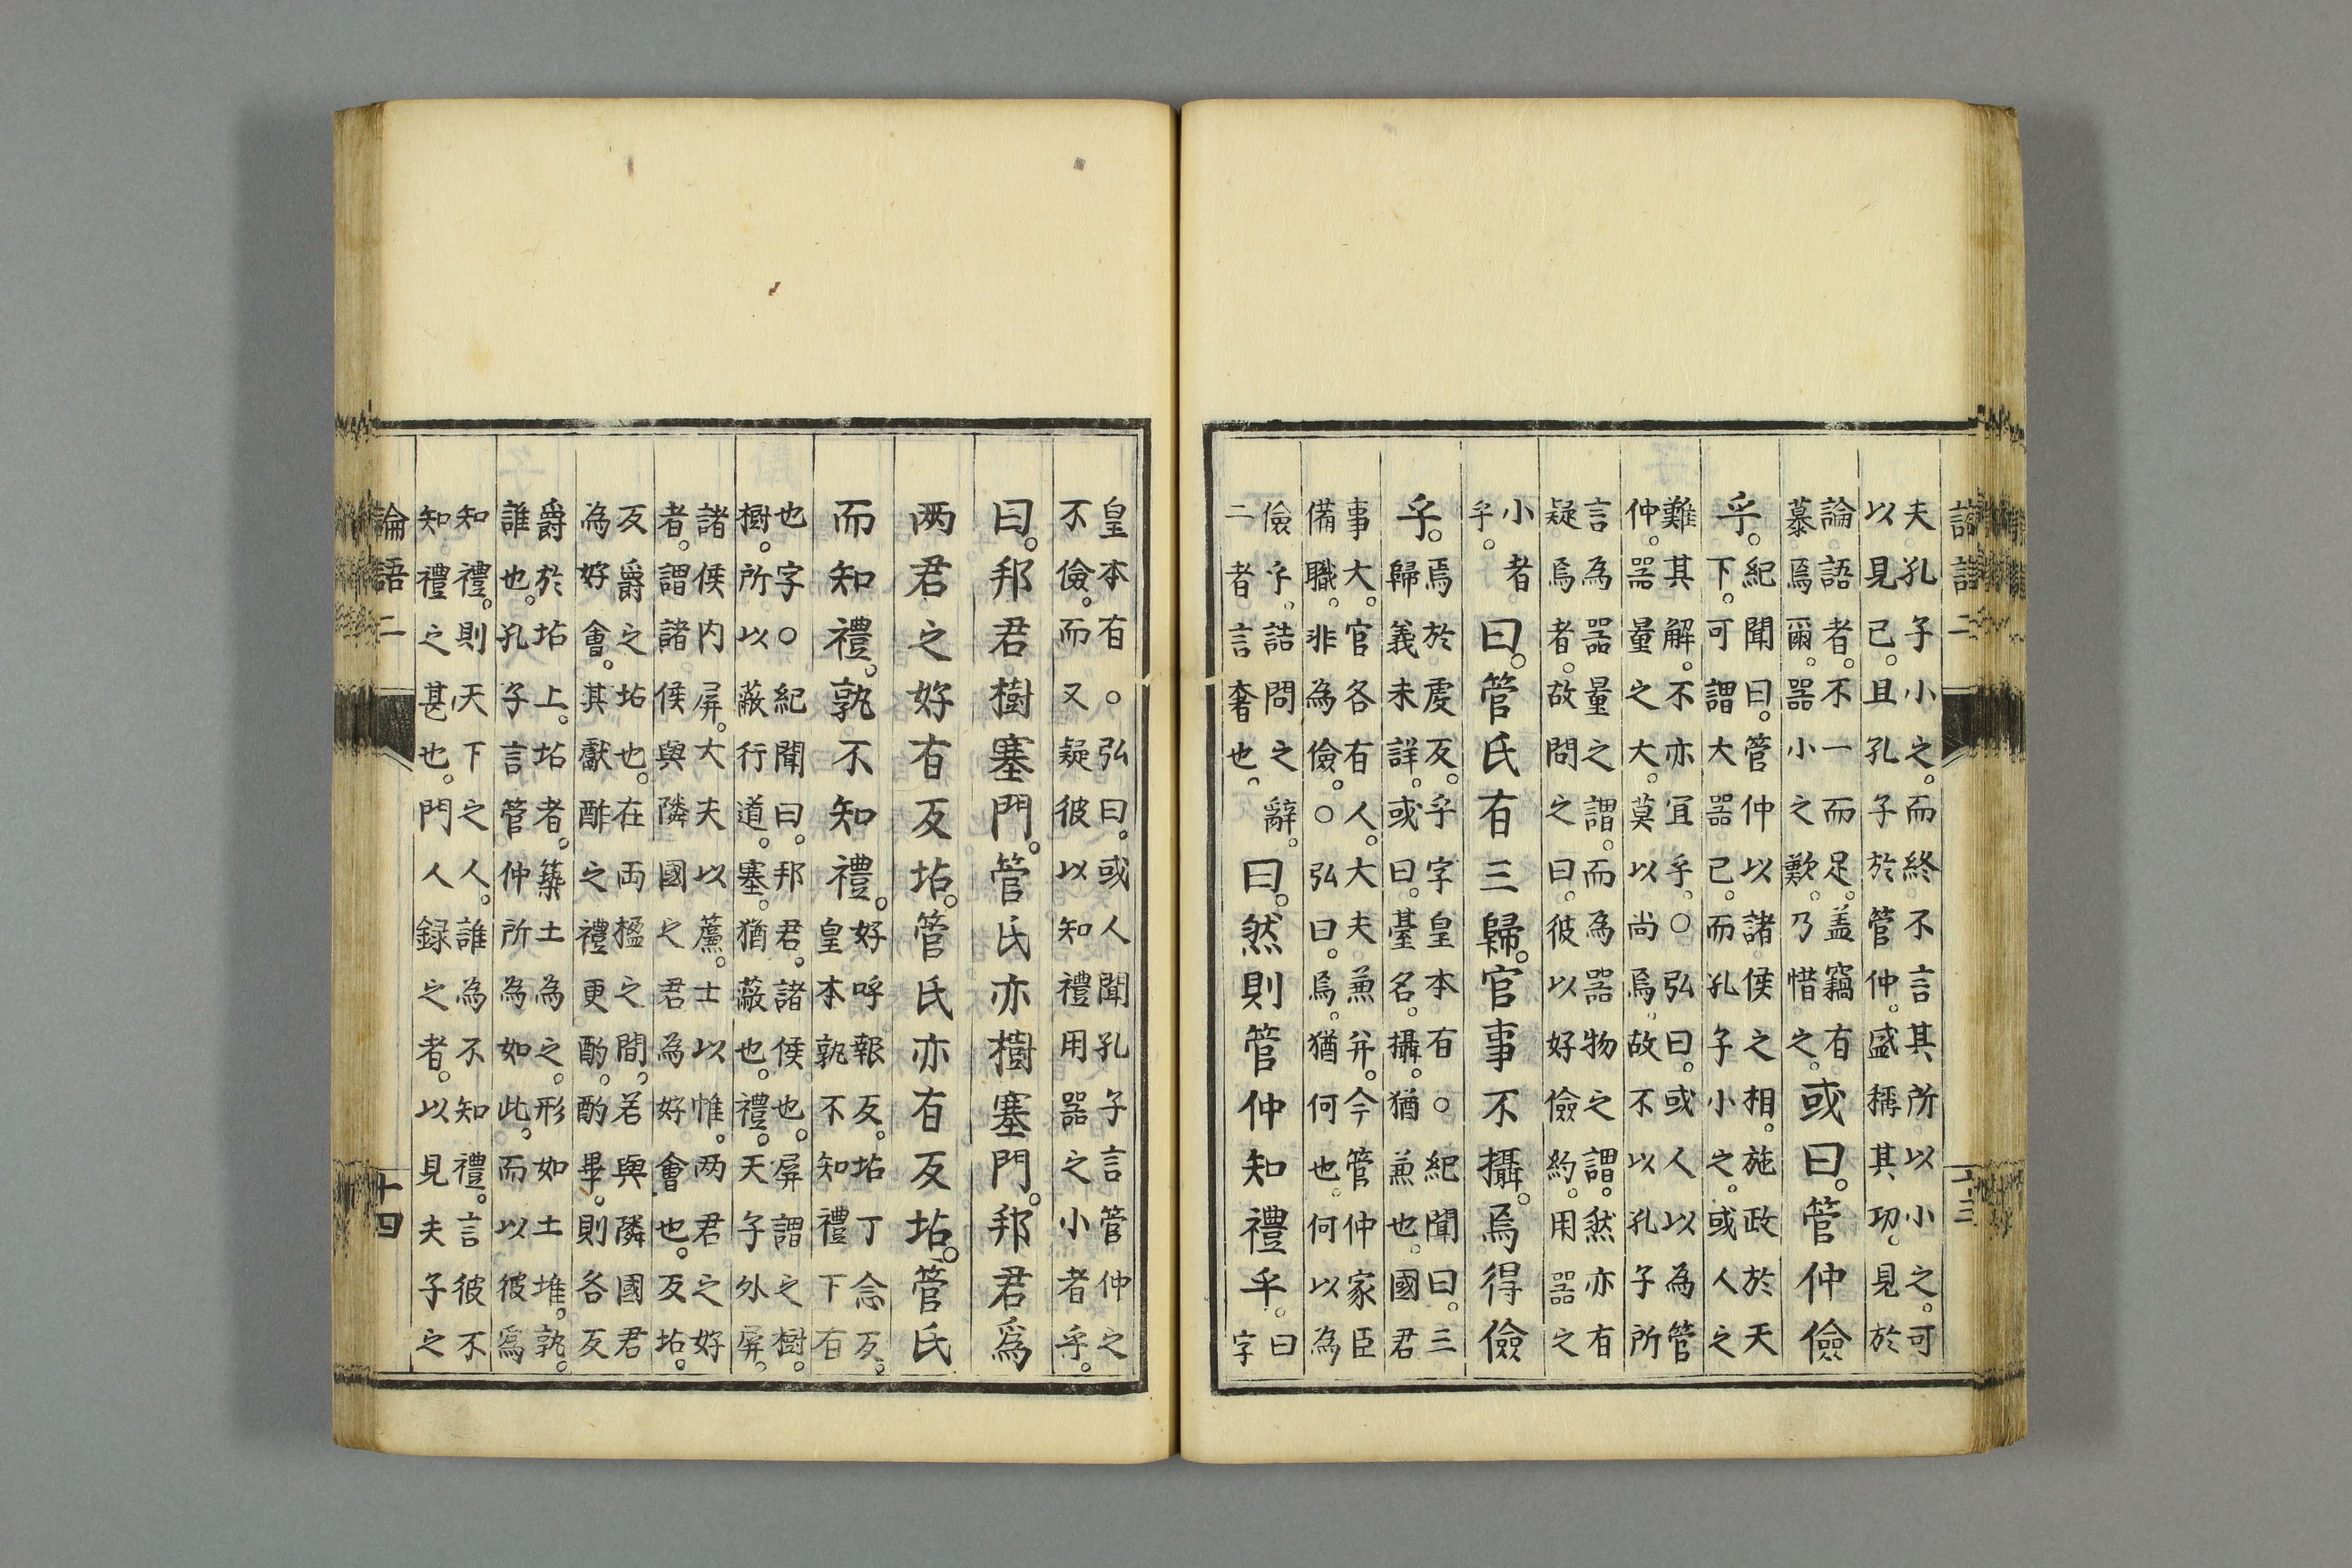 論語二
夫。孔子小之。而終不言其所以小之。可
以見已。且孔子於管仲。盛稱其功。見於
論語者。不一而足。蓋竊有
慕焉爾。器小之歎。乃惜之。
或曰。管仲儉
乎。
紀聞曰。管仲以諸侯之相。施政於天
下。可謂大器已。而孔子小之。或人之
難其解。不亦宜乎。○弘曰。或人以為管
仲。器量之大。莫以尚焉。故不以孔子所
言為器量之謂。而為器物之謂。然亦有
疑焉者。故問之曰。彼以好儉約。用器之
小者
乎。
曰。管氏有三歸。官事不攝。焉得儉
乎。
焉於虔反。乎字皇本有○紀聞曰。三
歸義未詳。或曰。臺名。攝。猶兼也。國君
事大。官各有人。大夫兼并。今管仲家臣
備職。非為儉。○弘曰。焉。猶何也。何以為
儉乎。詰問之辭。
二者。言奢也。
曰。然則管仲知禮乎。
曰
字
十三
皇本有○弘曰。或人聞孔子言管仲之
不儉。而又疑彼以知禮用器之小者乎。
曰。邦君樹塞門。管氏亦樹塞門。邦君爲
两君之好有反坫。管氏亦有反坫。管氏
而知禮。孰不知禮。
好呼報反。坫丁念反。
皇本孰不知禮下有
也字○紀聞曰。邦君。諸侯也。屏謂之樹。
樹。所以蔽行道。塞。猶蔽也。禮。天子外屏。
諸侯内屏。大夫以簾。士以帷。两君之好
者。謂諸侯與隣國之君為好會也。反坫。
反爵之坫也。在両楹之間。若與隣國君
為好會。其獻酢之禮更酌。酌畢。則各反
爵於坫上。坫者。築土為之。形如土堆。孰。
誰也。孔子言管仲所為如此。而以彼爲
知禮。則天下之人。誰為不知禮。言彼不
知。禮之甚也。門人録之者。以見夫子之
論語二
十四